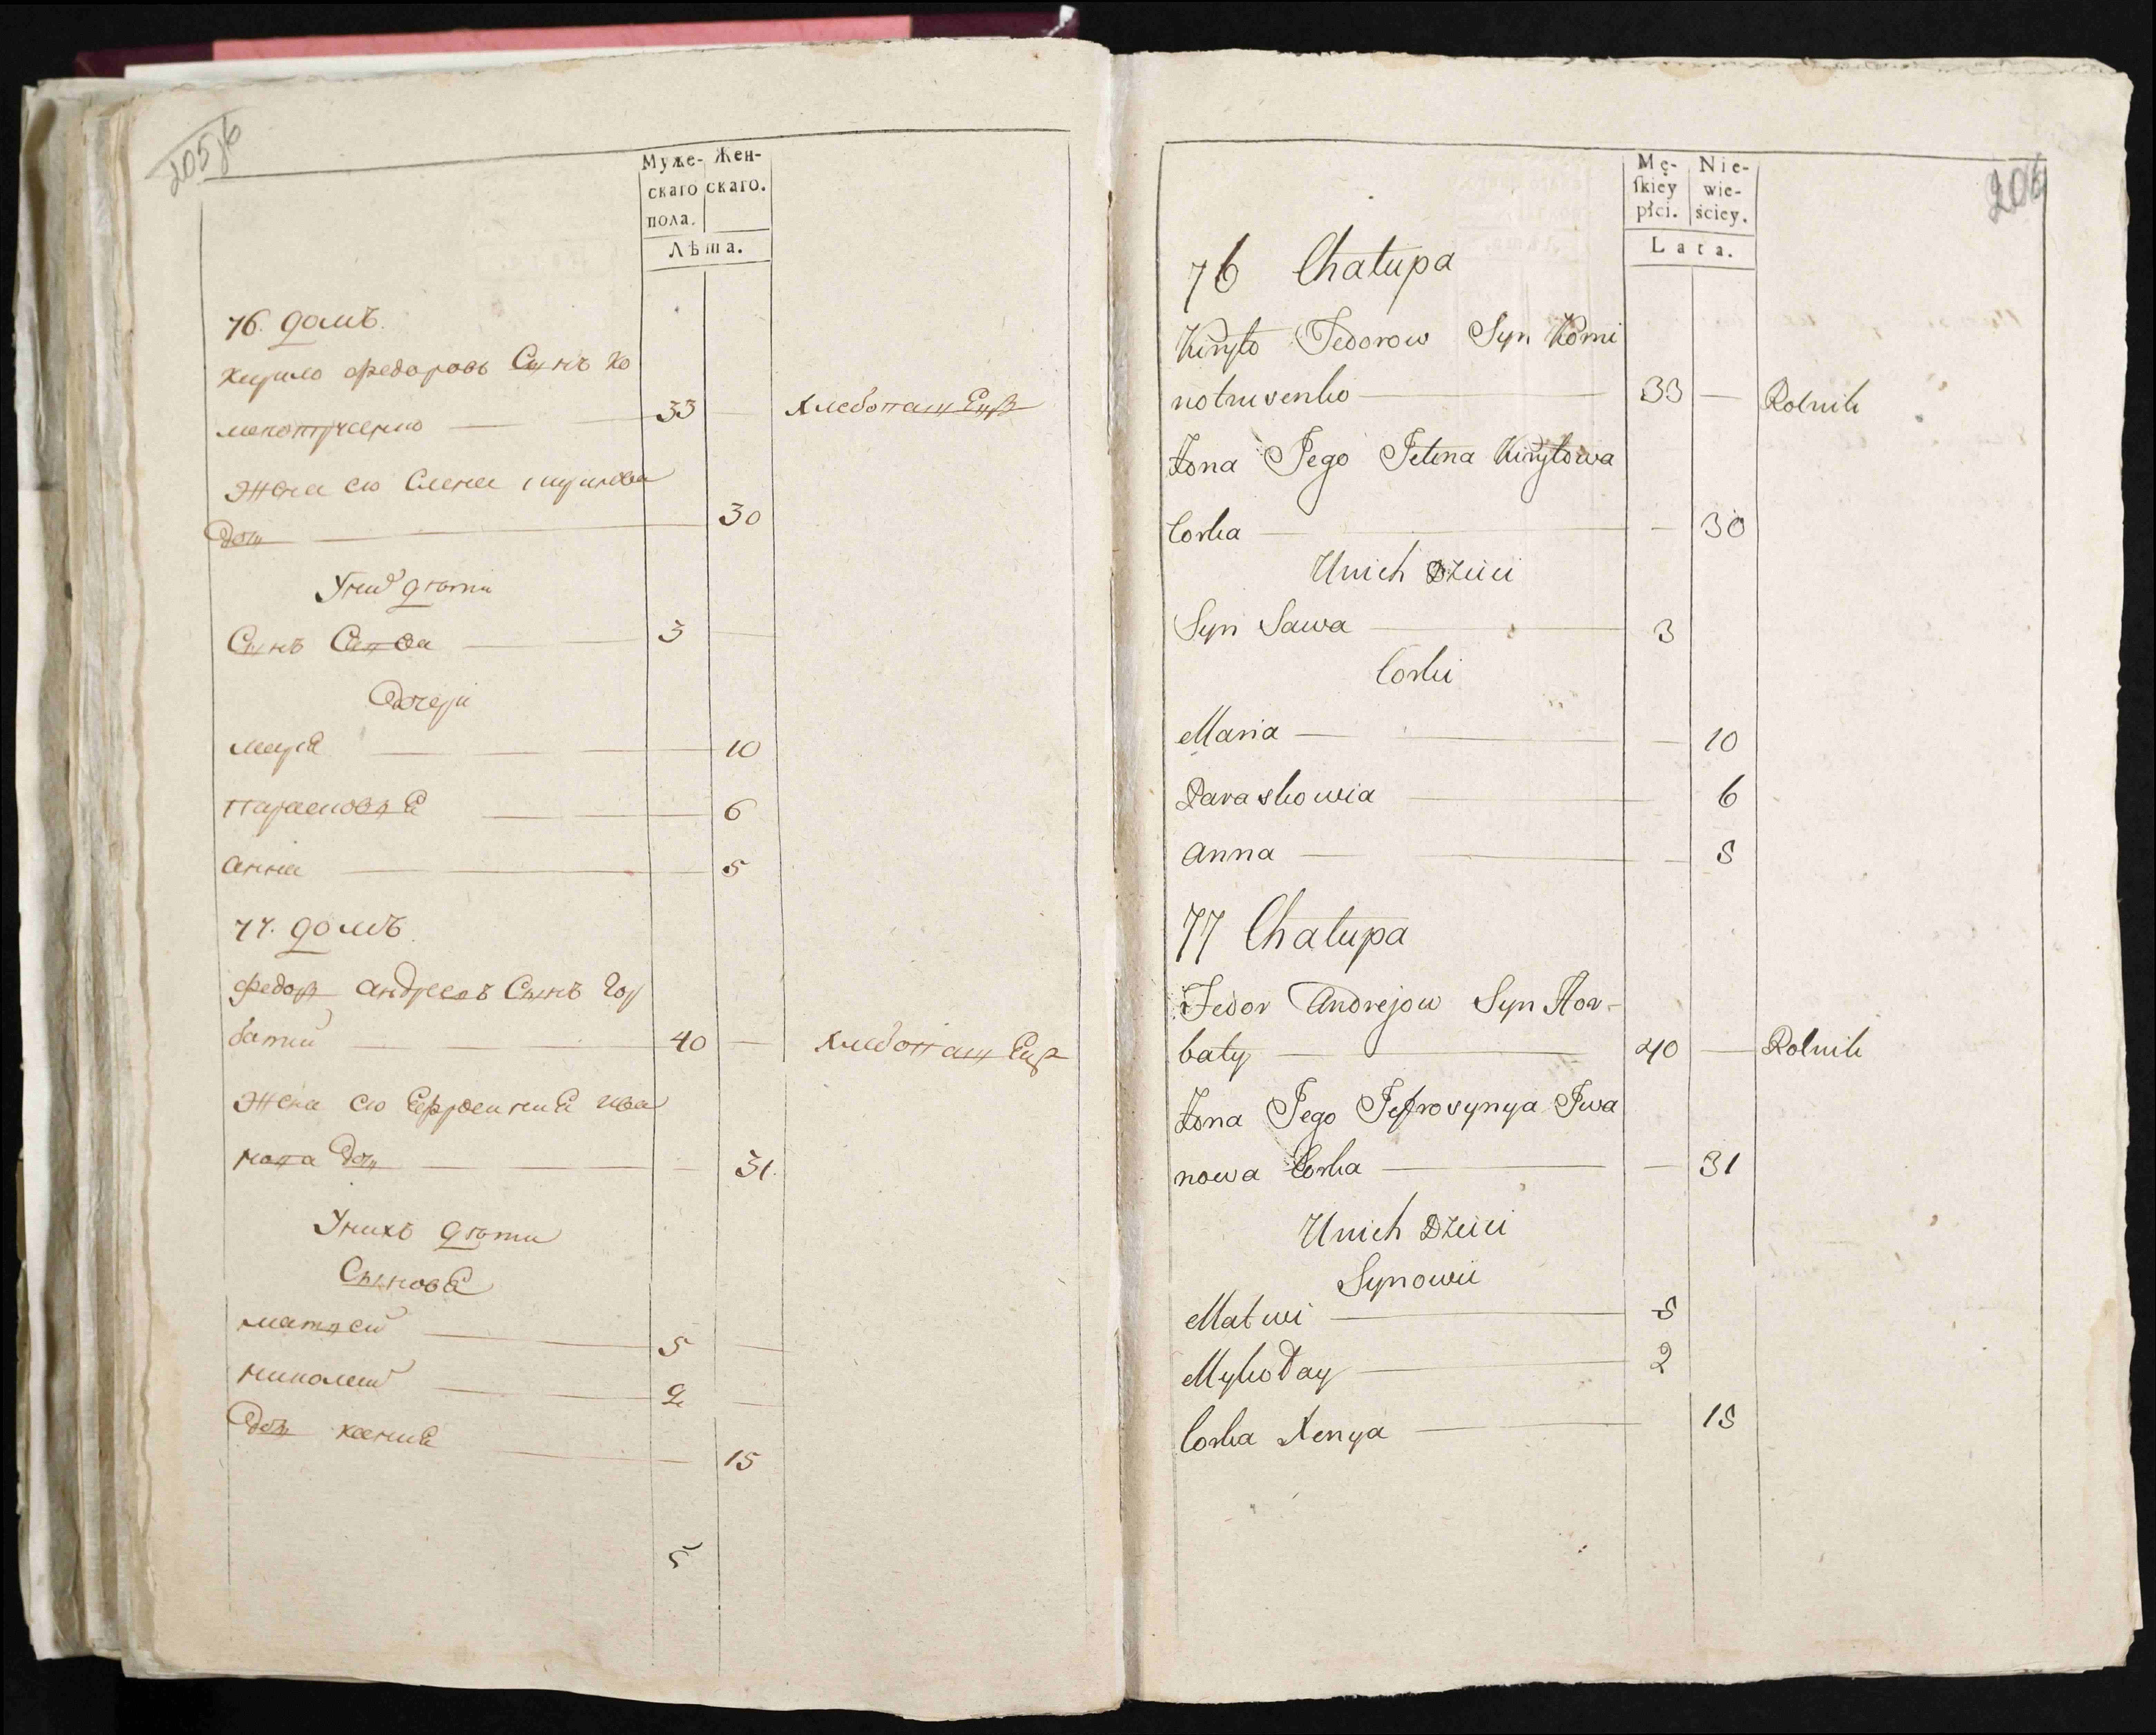 205об
Муже- Жен-
скаго скаго.
пола.
Лѣта.
76. домъ.
Кирило федоровъ Сынъ Ко
33 Хлебопашецъ
Жена его Елена кирилова
Доч 30
Уних дѣти
Сынъ Савва 3
Дочери
Марія 10
Парасковія 6
Анна 5
77. домъ
федор андреевъ Сынъ Гор
батий 40 Хлебопашецъ
Жена его Ефросинія ива
нова Доч 31.
Унихъ дѣти
Сыновя
Матвей 5
Николай 2
Доч ксенія 15
206
Mę- Nie-
ſkiey wie-
płci. ściey.
Lata.
76 Chałupa
Kiryło Fedorow Syn Komi
notrusenko 33 Rolnik
Żona Jego Jelena Kiryłowa
Corka 30
Unich Dzieci
Syn Sawa 3
Corki
Maria 10
Paraskowia 6
Anna 5
77 Chałupa
Fedor Andrejow Syn Hor-
baty 40 Rolnik
Żona Jego Jefrosynya Iwa
nowa Corka 31
Unich Dzieci
Synowii
Matwi 5
Mykołay 2
Corka Xenya 15